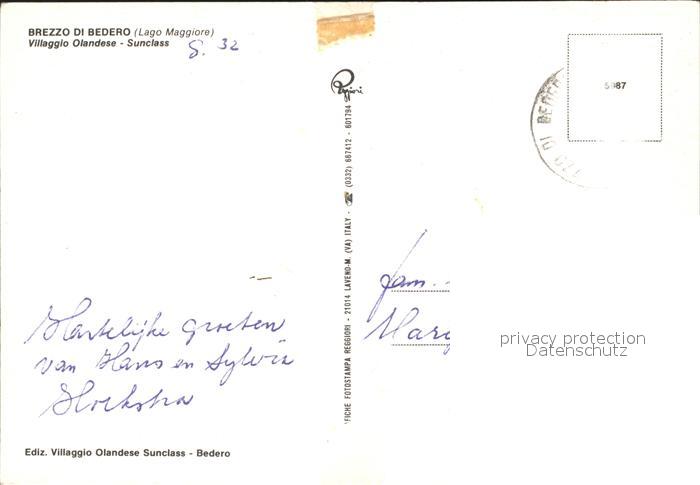 BREZZO DI BEDERO (Lago Maggiore)
Villaggio Olandese - Sunclass
G. 32
Reggiori
FICHE FOTOSTAMPA REGGIORI - 21014 LAVENO-M. (VA) ITALY - ☎ (0332) 667412 - 601794
5987
ZZO DI BEDER
fam...
Mar
Hartelijke groeten
van Hans en Sylvia
Hoekstra
privacy protection
Datenschutz
Ediz. Villaggio Olandese Sunclass - Bedero